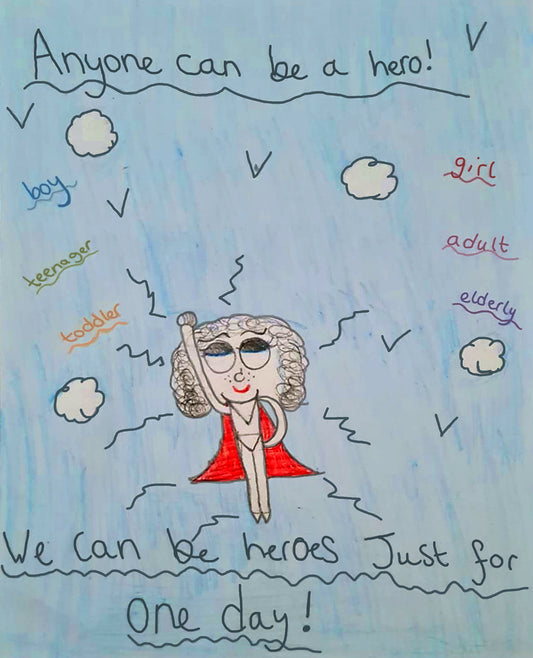 Anyone can be a hero!
boy
girl
teenager
adult
toddler
elderly
We can be heroes Just for
One day!